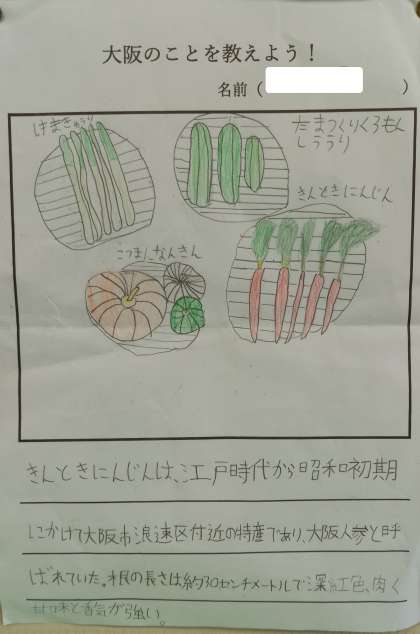 大阪のことを教えよう!
名前( )
はまきゅうり
たまつくりくろもん
しろうり
きんときにんじん
こつまなんきん
きんときにんじんは、江戸時代から昭和初期
にかけて大阪市浪速区付近の特産であり、大阪人参と呼
ばれていた。根の長さは約30センチメートルで深紅色、肉く
甘味と香気が強い。